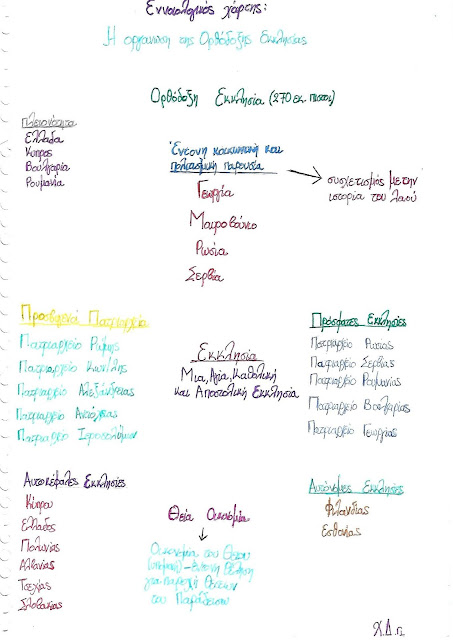 Εννοιολογικός χάρτης:
Η οργάνωση της Ορθόδοξης Εκκλησίας
Ορθόδοξη Εκκλησία (270 εκ. πιστοί)
Πλειονότητα
Ελλάδα
Κύπρος
Βουλγαρία
Ρουμανία
Έντονη κοινωνική και
πολιτισμική παρουσία
Γεωργία
Μαυροβούνιο
Ρωσία
Σερβία
συσχετισμός με την
ιστορία του λαού
Πρεσβυγενή Πατριαρχεία
Πατριαρχείο Ρώμης
Πατριαρχείο Κων/λης
Πατριαρχείο Αλεξάνδρειας
Πατριαρχείο Αντιόχειας
Πατριαρχείο Ιεροσολύμων
Εκκλησία
Μία, Αγία, Καθολική
και Αποστολική Εκκλησία
Πρόσφατες Εκκλησίες
Πατριαρχείο Ρωσίας
Πατριαρχείο Σερβίας
Πατριαρχείο Ρουμανίας
Πατριαρχείο Βουλγαρίας
Πατριαρχείο Γεωργίας
Αυτοκέφαλες Εκκλησίες
Κύπρου
Ελλάδος
Πολωνίας
Αλβανίας
Τσεχίας
Σλοβακίας
Θεία Οικονομία
Οικονομία του Θεού
για παροχή
του Παραδείσου
Αυτόνομες Εκκλησίες
Φιλανδίας
Εσθονίας
Χ.Δ.